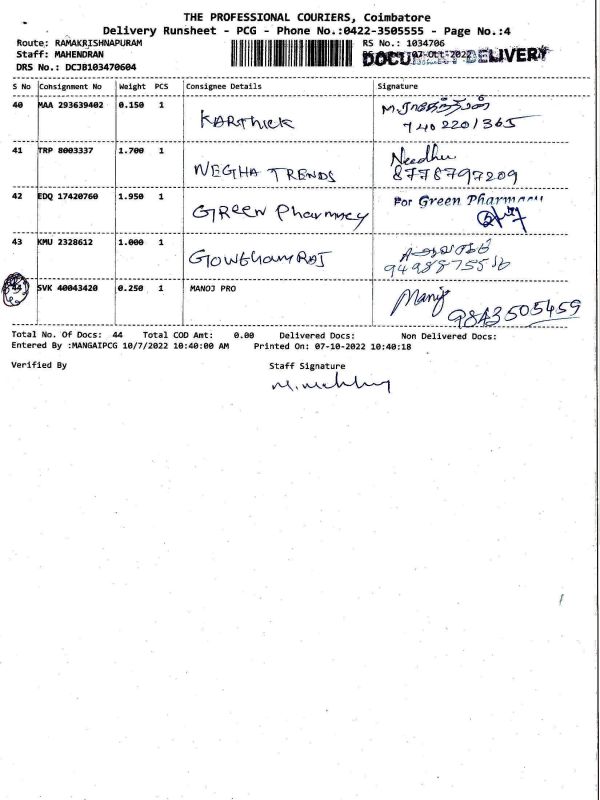 THE PROFESSIONAL COURIERS, Coimbatore
Delivery Runsheet - PCG - Phone No.:0422-3505555 - Page No.:4
Route: RAMAKRISHNAPURAM RS No.: 1034706
Staff: MAHENDRAN 07-Oct-2022 DELIVERY
DRS No.: DCJB103470604
S No Consignment No Weight PCS Consignee Details Signature
40 MAA 293639402 0.150 1 KARTHICK
7402201365
41 TRP 8003337 1.700 1 NEGHA TRENDS Needhu
8778797209
42 EDQ 17420760 1.950 1 GREEN Pharmacy For Green Pharmacy
43 KMU 2328612 1.000 1 GOWTHAM RAJ
44 SVK 40043420 0.250 1 MANOJ PRO Manoj
9843505459
Total No. Of Docs: 44 Total COD Amt: 0.00 Delivered Docs: Non Delivered Docs:
Entered By :MANGAIPCG 10/7/2022 10:40:00 AM Printed On: 07-10-2022 10:40:18
Verified By Staff Signature